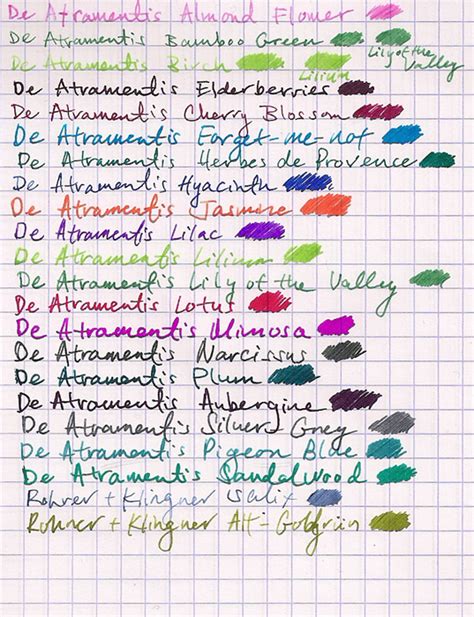 De Atramentis Almond Flower
De Atramentis Bamboo Green Lily of the Valley
De Atramentis Birch Lilium
De Atramentis Elderberries
De Atramentis Cherry Blossom
De Atramentis Forget-me-not
De Atramentis Herbes de Provence
De Atramentis Hyacinth
De Atramentis Jasmine
De Atramentis Lilac
De Atramentis Lilium
De Atramentis Lily of the Valley
De Atramentis Lotus
De Atramentis Mimosa
De Atramentis Narcissus
De Atramentis Plum
De Atramentis Aubergine
De Atramentis Silver Grey
De Atramentis Pigeon Blue
De Atramentis Sandalwood
Rohrer + Klingner Salix
Rohrer + Klingner Alt-Goldgrün